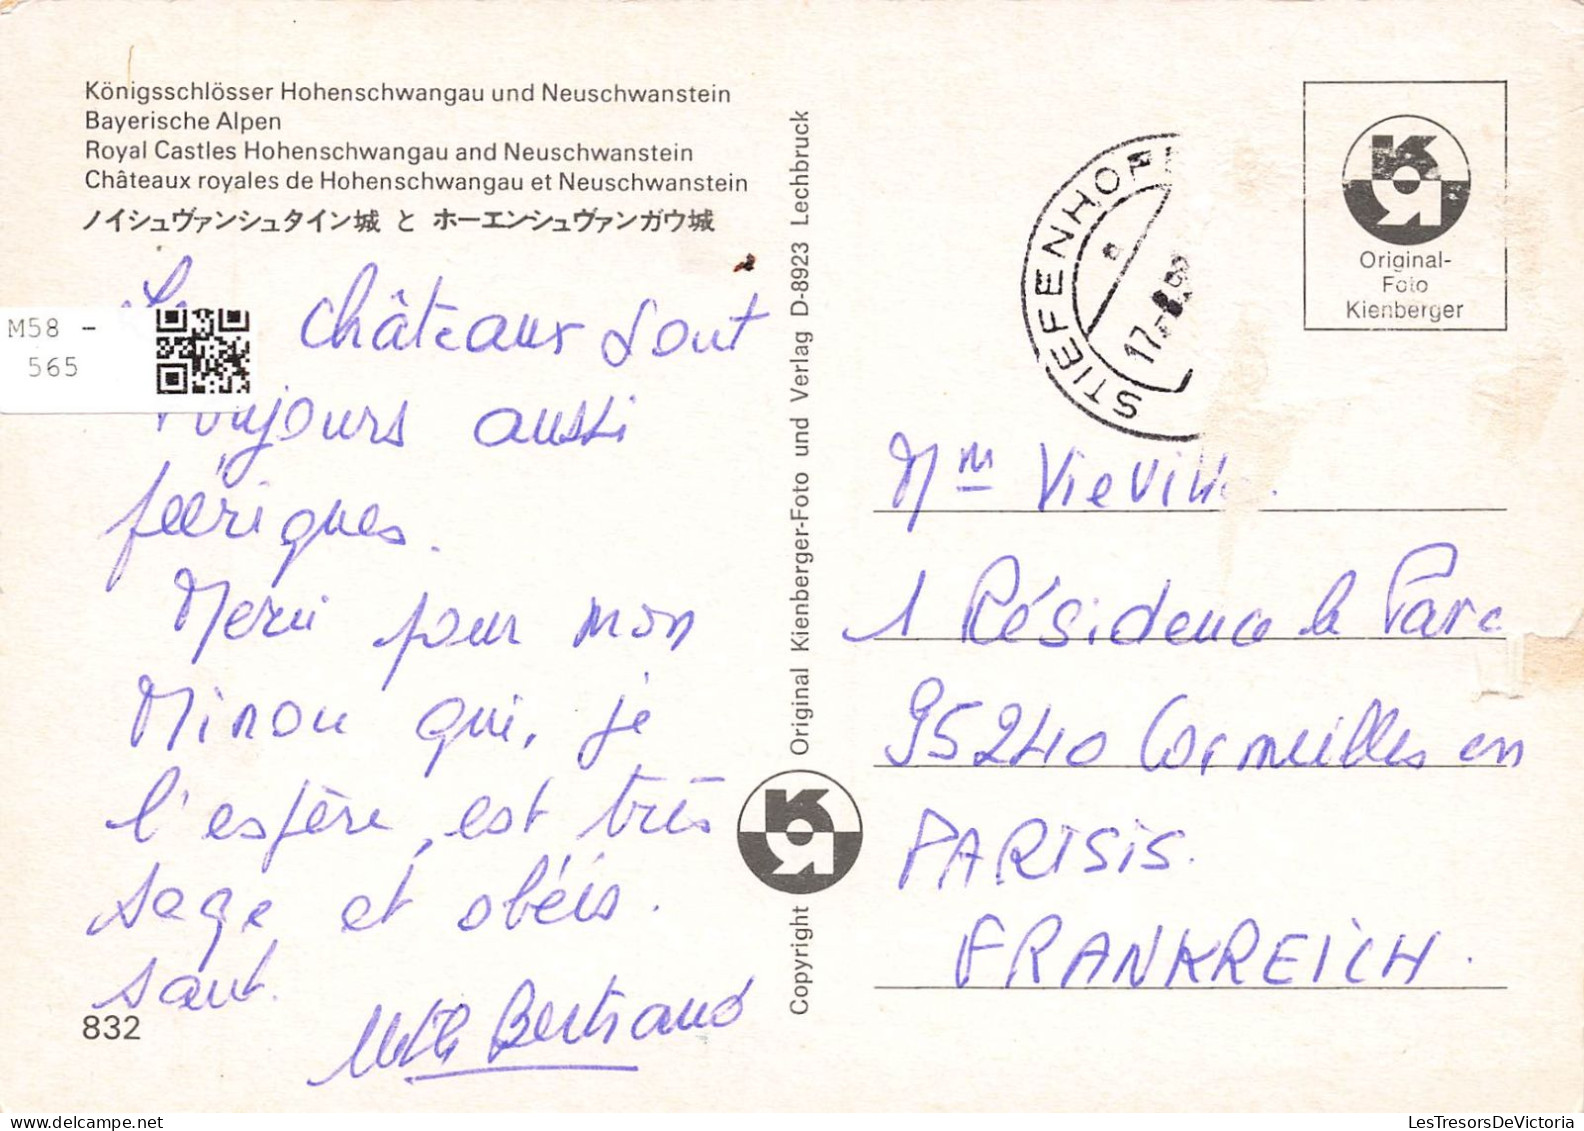 Königsschlösser Hohenschwangau und Neuschwanstein
Bayerische Alpen
Royal Castles Hohenschwangau and Neuschwanstein
Châteaux royales de Hohenschwangau et Neuschwanstein
ノイシュヴァンシュタイン城 と ホーエンシュヴァンガウ城
M58 -
565
châteaux sont
toujours aussi
féériques.
Merci pour mon
Minou qui, je
l'espère, est très
sage et obéis.
sant.
Bertrand
832
Copyright Original Kienberger-Foto und Verlag D-8923 Lechbruck
STIEFENHOF
17.
Original-
Foto
Kienberger
Mm
1 Résidence le Parc
95240 Cormeilles en
PARISIS.
FRANKREICH.
LesTresorsDeVictoria
delcampe.net